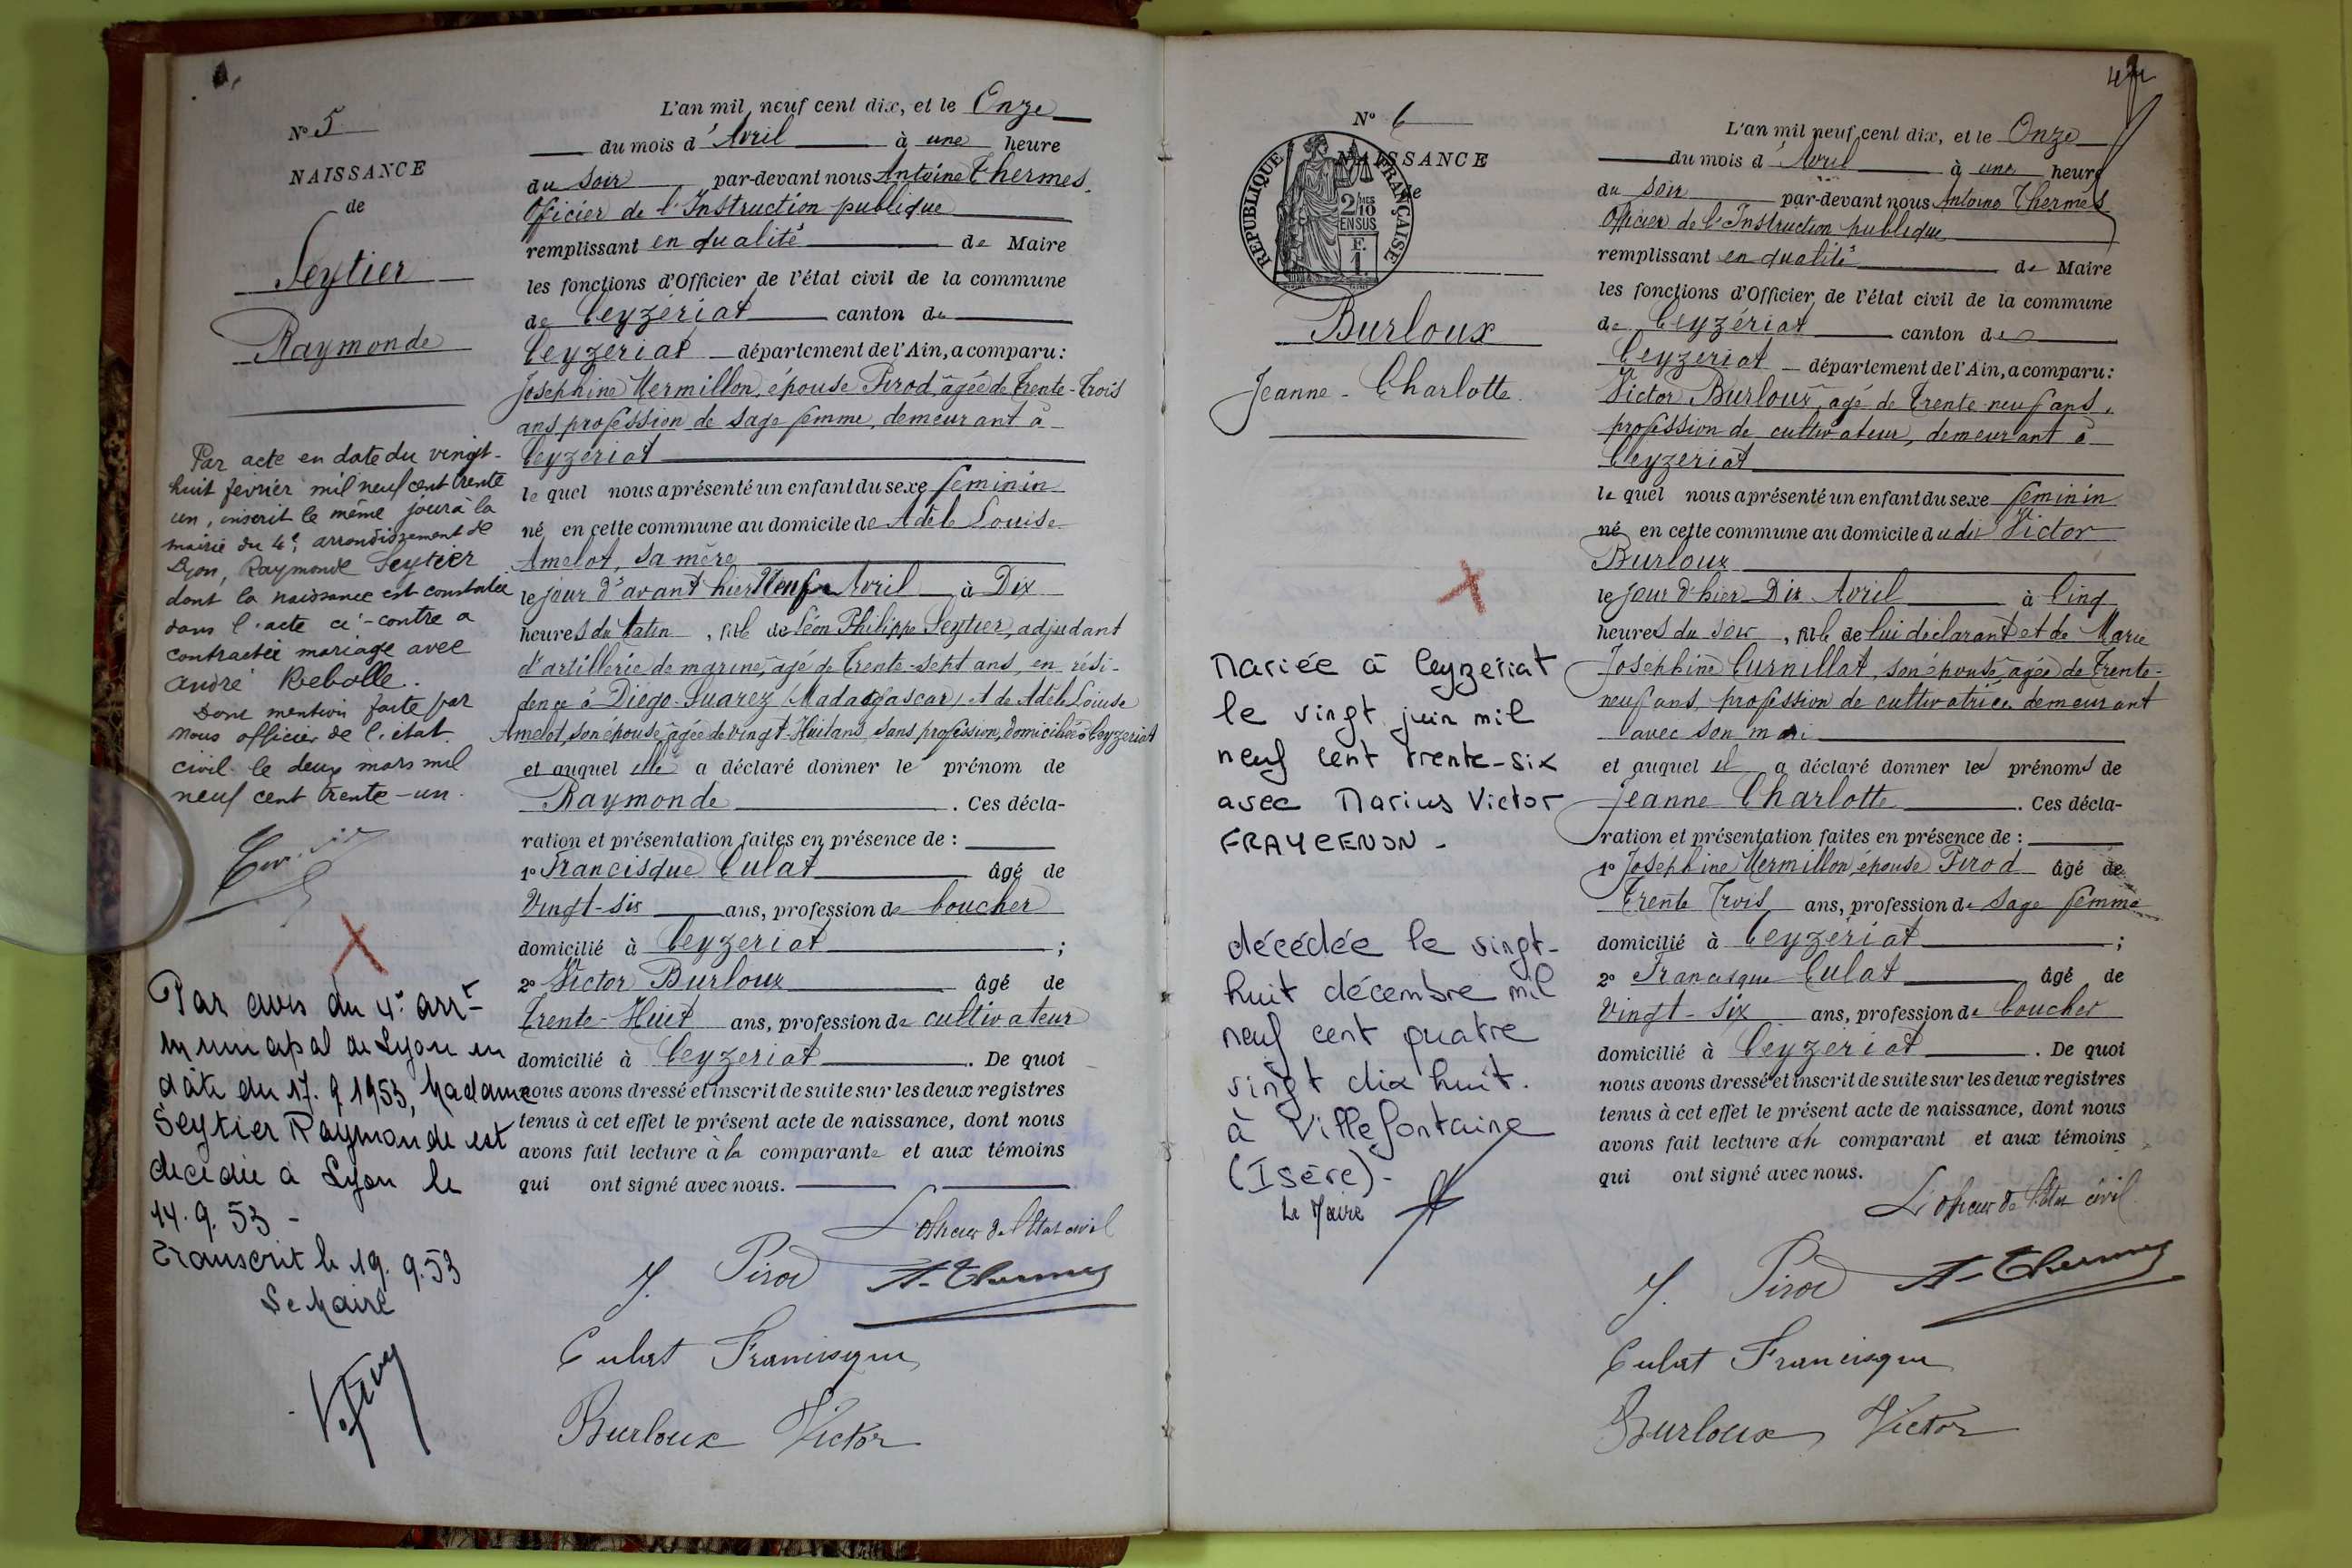 N° 5
NAISSANCE
de
Seytier
Raymonde
Par acte en date du vingt-
huit février mil neuf cent trente
un, inscrit le même jour à la
mairie du 4e arrondissement de
Lyon, Raymonde Seytier
dont la naissance est constatée
dans l'acte ci-contre a
contracté mariage avec
André Rebolle.
Dont mention faite par
nous officier de l'état
civil le deux mars mil
neuf cent trente-un.
Par avis du 4e arrt
municipal de Lyon en
date du 17.9 1953, Madame
Seytier Raymonde est
décédée à Lyon le
14.9.53 -
Transcrit le 19.9.53
Le Maire
L'an mil neuf cent dix, et le Onze
du mois d'Avril à une heure
du soir par-devant nous Antoine Thermes,
Officier de l'Instruction publique
remplissant en qualité de Maire
les fonctions d'Officier de l'état civil de la commune
de Ceyzériat canton de
Ceyzeriat département de l'Ain, a comparu :
Josephine Mermillon, épouse Pirod, âgée de Trente-Trois
ans profession de sage femme, demeurant à
Ceyzériat
le quel nous a présenté un enfant du sexe feminin
né en cette commune au domicile de Adèle Louise
Amelot, sa mère
le jour d'avant hier Neuf Avril à Dix
heures du Matin, fille de Léon Philippe Seytier, adjudant
d'artillerie de marine, âgé de Trente-sept ans, en rési-
dence à Diego-Suarez (Madagascar) et de Adèle Louise
Amelot, son épouse âgée de vingt-Huit ans, sans profession, domiciliée à Ceyzeriat
et auquel elle a déclaré donner le prénom de
Raymonde. Ces décla-
ration et présentation faites en présence de :
1° Francisque Culat âgé de
Vingt-six ans, profession de boucher
domicilié à Ceyzeriat ;
2° Victor Burloux âgé de
Trente-Huit ans, profession de cultivateur
domicilié à Ceyzeriat. De quoi
nous avons dressé et inscrit de suite sur les deux registres
tenus à cet effet le présent acte de naissance, dont nous
avons fait lecture à la comparante et aux témoins
qui ont signé avec nous.
L'officier de l'Etat civil
J. Pirod A. Thermes
Culat Francisque
Burloux Victor
N° 6
NAISSANCE
de
RÉPUBLIQUE FRANÇAISE
2/10 MES
EN SUS
F.
1.
Burloux
Jeanne-Charlotte.
Mariée à Ceyzeriat
le vingt juin mil
neuf cent trente-six
avec Marius Victor
FRAYCENON -
décédée le vingt-
huit décembre mil
neuf cent quatre
vingt dix huit.
à Villefontaine
(Isère)-
Le Maire
L'an mil neuf cent dix, et le Onze
du mois d'Avril à une heure
du soir par-devant nous Antoine Thermes
Officier de l'Instruction publique
remplissant en qualité de Maire
les fonctions d'Officier de l'état civil de la commune
de Ceyzériat canton de
Ceyzeriat département de l'Ain, a comparu :
Victor Burloux, âgé de Trente-neuf ans,
profession de cultivateur, demeurant à
Ceyzeriat
le quel nous a présenté un enfant du sexe feminin
né en cette commune au domicile du dit Victor
Burloux
le jour d'hier Dix Avril à Cinq
heures du soir, fille de lui déclarant et de Marie
Joséphine Curnillat, son épouse, âgée de Trente-
neuf ans, profession de cultivatrice demeurant
avec son mari
et auquel il a déclaré donner les prénoms de
Jeanne Charlotte. Ces décla-
ration et présentation faites en présence de :
1° Josephine Mermillon épouse Pirod âgé de
Trente Trois ans, profession de sage femme
domicilié à Ceyzériat ;
2° Francisque Culat âgé de
Vingt-six ans, profession de boucher
domicilié à Ceyzériat. De quoi
nous avons dressé et inscrit de suite sur les deux registres
tenus à cet effet le présent acte de naissance, dont nous
avons fait lecture au comparant et aux témoins
qui ont signé avec nous.
L'officier de l'Etat civil
J. Pirod A. Thermes
Culat Francisque
Burloux Victor